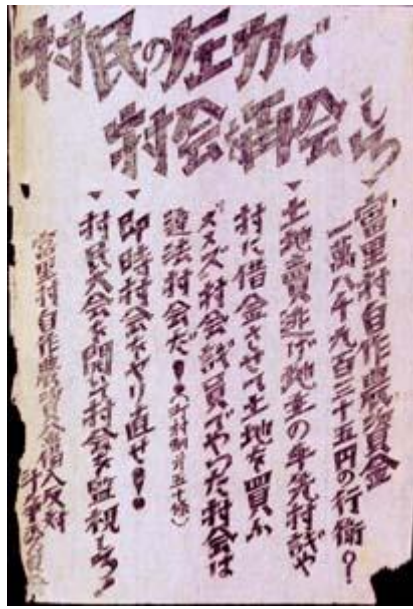 村民の圧力で
村会を再会しろ
▼富里村自作農資金
一萬八千九百三十五円の行衛?
▼土地賣逃げ地主の手先村議や
村に借金させて土地を買ふ
村会議員でやった村会は
違法村会だ!!(町村制 五十條)
▼即時村会をやり直せ!!
▼村民大会を開いて村会を監視しろ!
富里村自作農資金借入反対
斗争委員